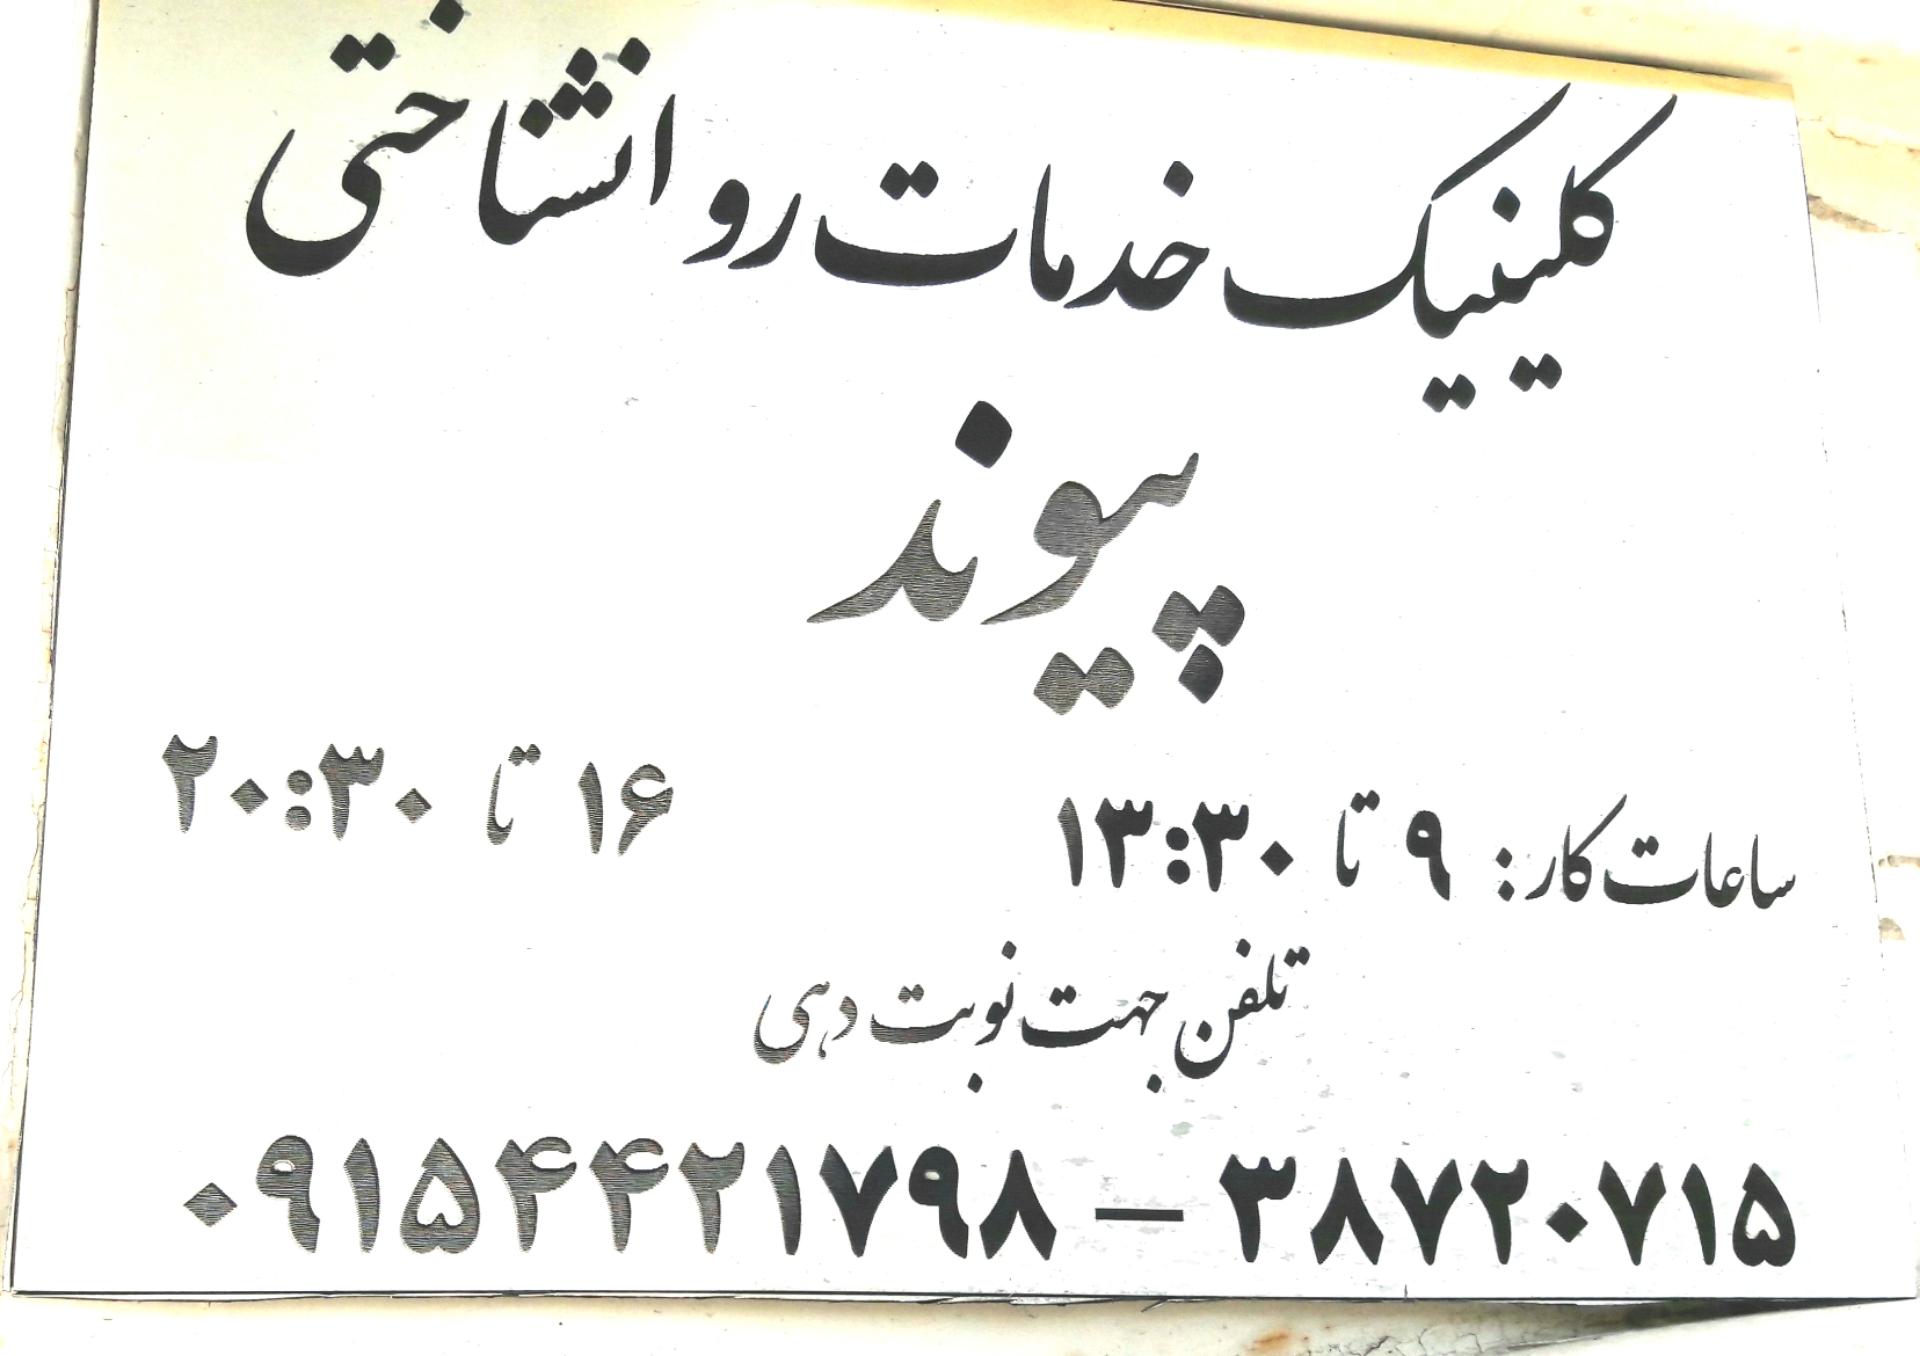 کلینیک خدمات روانشناختی
پیوند
ساعات کار: ۹ تا ۱۳:۳۰ ۱۶ تا ۲۰:۳۰
تلفن جهت نوبت دهی
۰۹۱۵۴۴۲۱۷۹۸ – ۳۸۷۲۰۷۱۵